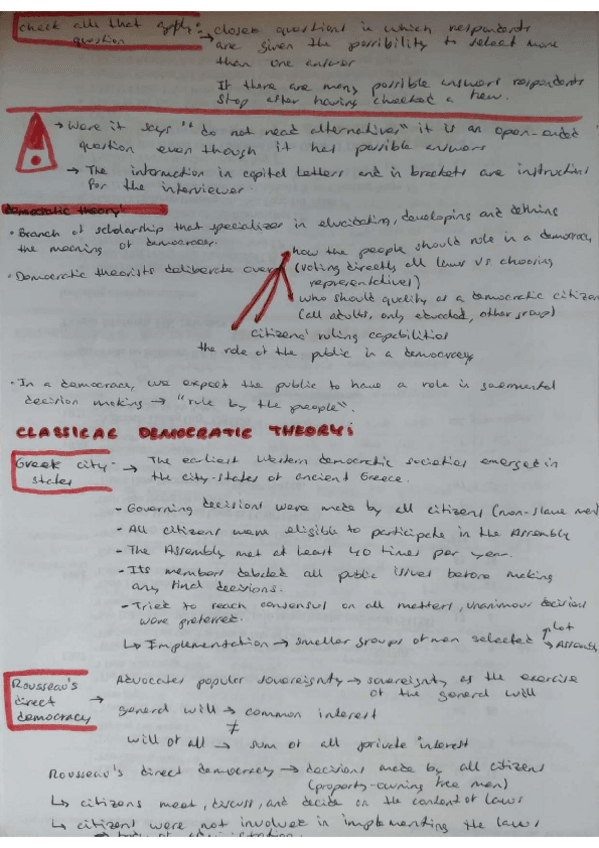 check all that apply question → closed questions in which respondents
are given the possibility to select more
than one answer
If there are many possible answers respondents
stop after having checked a few.
→ Were it says "do not read alternatives" it is an open-ended
question even though it has possible answers
→ The information in capital letters and in brackets are instructions
for the interviewer.
democratic theory:
• Branch of scholarship that specializes in elucidating, developing and defining
the meaning of democracy.
how the people should rule in a democracy
• Democratic theorists deliberate over
(voting directly all laws vs choosing
representatives)
who should qualify as a democratic citizen
(all adults, only educated, other group)
citizens' ruling capabilities
the role of the public in a democracy
• In a democracy, we expect the public to have a role in
decision making → "rule by the people".
CLASSICAL DEMOCRATIC THEORY:
Greek city-states → The earliest Western democratic societies emerged in
the city-states of ancient Greece.
- Governing decisions were made by all citizens (non-slave men)
- All citizens were eligible to participate in the Assembly
- The Assembly met at least 40 times per year.
- Its members debated all public issues before making
any final decisions.
- Tried to reach consensus on all matters, unanimous decisions
were preferred.
↳ Implementation → smaller groups of men selected lot
→ Assembly
Rousseau's direct democracy → Advocates popular sovereignty → sovereignty as the exercise
of the general will
general will → common interest
≠
will of all → sum of all private interest
Rousseau's direct democracy → decisions made by all citizens
(property-owning free men)
↳ citizens meet, discuss, and decide on the content of laws
↳ citizens were not involved in implementing the laws